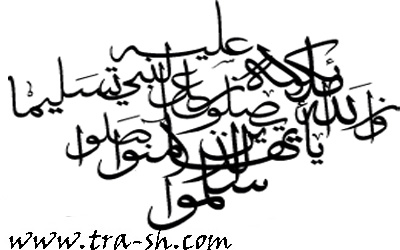 إن الله وملائكته يصلون على النبي يا أيها الذين آمنوا صلوا عليه وسلموا تسليما
www.tra-sh.com